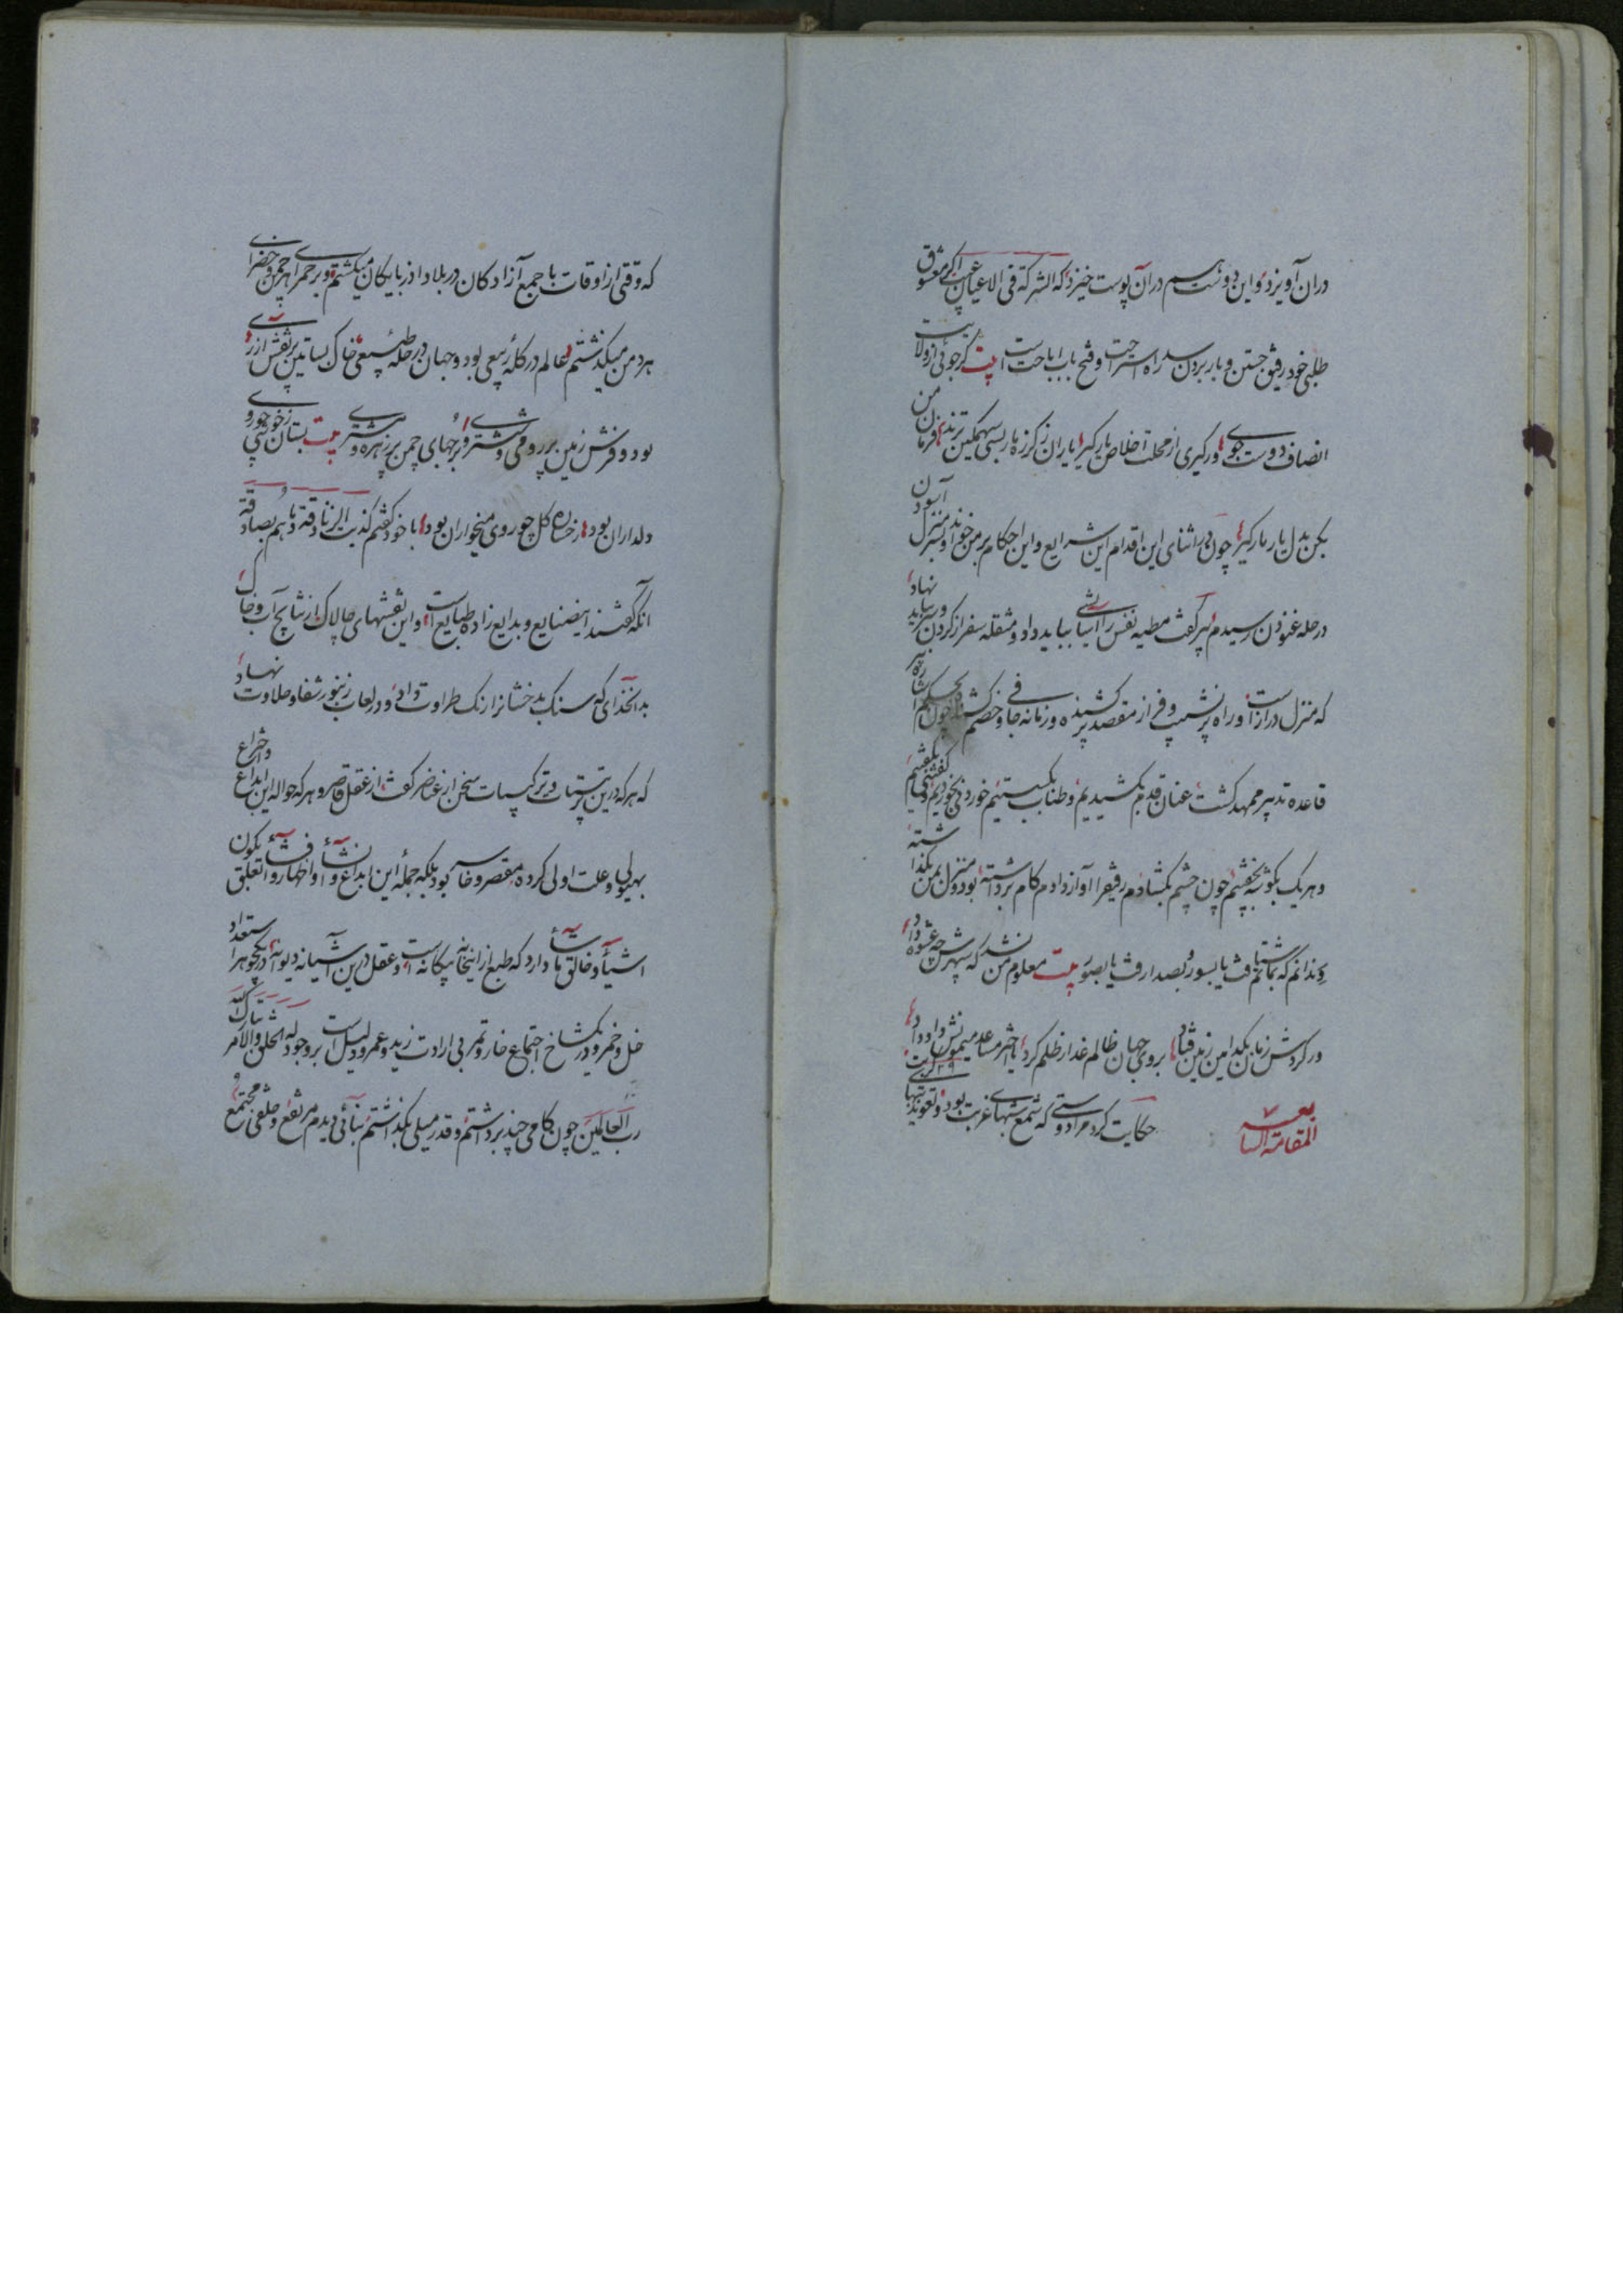 دران آویزد و این دوست هم دران پوست خیزد که الشرکة فی الاعیان عیب اگر معشوق
طلبی خود رفیق جستن و بار بردن سد راه استراحت و فتح باب اباحت است بیت گر جوئی از ولایت
انصاف دوست جوی ور گیری از محلت اخلاص یار گیر یاران زکرزه مار بسی سهمگین ترند فرمان من
بکن بدل یار مار گیر چون در اثنای این اقدام این شرایع و این احکام بر من خواند و بمنزل آسودن
در حله غنودن رسیدم پیر گفت مطیه نفس را آسایشی بباید داد و مثقله سفر از گردن بباید نهاد
که منزل دراز است و راه پر نشیب و فراز مقصد پر کشنده و زمانه جافی و خصم چون بحکم اشارة پیر
قاعده تدبیر ممهد گشت عنان قدم بکشیدیم و طناب بکسستیم خوردنی بخوردیم و گفتنی بگفتیم
و هر یک بگوشه بخفتیم چون چشم بگشادم رفیق را آواز دادم گام برداشته بود و منزل بمن بگذاشته
و ندانم که بماتم شتافت یا بسور و بصدارفت یا بصور بیت معلوم من نشد که سپهرش چه عشوه داد
ور گردش زمان بکدامین زمین فتاد بروی جهان ظالم غدار ظلم کرد یا اختر مساعد میمونش داد داد
المقامة السابعه حکایت کرد مرا دوستی که شمع شبهای غربت بود و تعویذ تبهای کربت
که وقتی از اوقات با جمع آزادکان در بلاد اذربایکان میکشتم و بر حمرای هر چمن و خضرای
هر دمن میکذشتم عالم در کلهٔ ربیعی بود و جهان در حلهٔ طبیعی خاک بساتین پر نقش ازری
بود و فرش زمین پر رومی و ششتری و برجهای چمن پر زهره و مشتری بیت بستان ز خوشی چو روی
دلداران بود رخساره گل چو روی میخواران بود با خود گفتم کذبت الزنادقة و ما هم بصادقة
آنکه گفتند اینصنایع و بدایع زاده طبایع است و این نقشهای چالاک از نتایج آب و خاک
بدانخدای که سنک بدخشانرا رنک طراوت داد و در لعاب زنبور شفا و حلاوت نهاد
که هر که درین ترتیبات و ترکیبات سخن از عناصر گفت از عقل قاصر و هر که حواله این ابداع و اختراع
بهیولی و علت اولی کرده مقصر و خاسر بود بلکه جمله این ابداع و انشآء و اظهار و افشآء تعلق بکون
اشیآء و خالق ما یشآء دارد که طبع از اینخانه بیگانه است و عقل درین آشیانه دیوانه در یکجوهر استعداد
خل و خمر و در یکشاخ اجتماع خار و تمر بی ارادت زید و عمرو دلیل است بر وجود له الخلق والامر تبارک الله
رب العالمین چون کامی چند برداشتم و قدر میلی بکذاشتم بنائی دیدم مرتفع و خلقی مجتمع